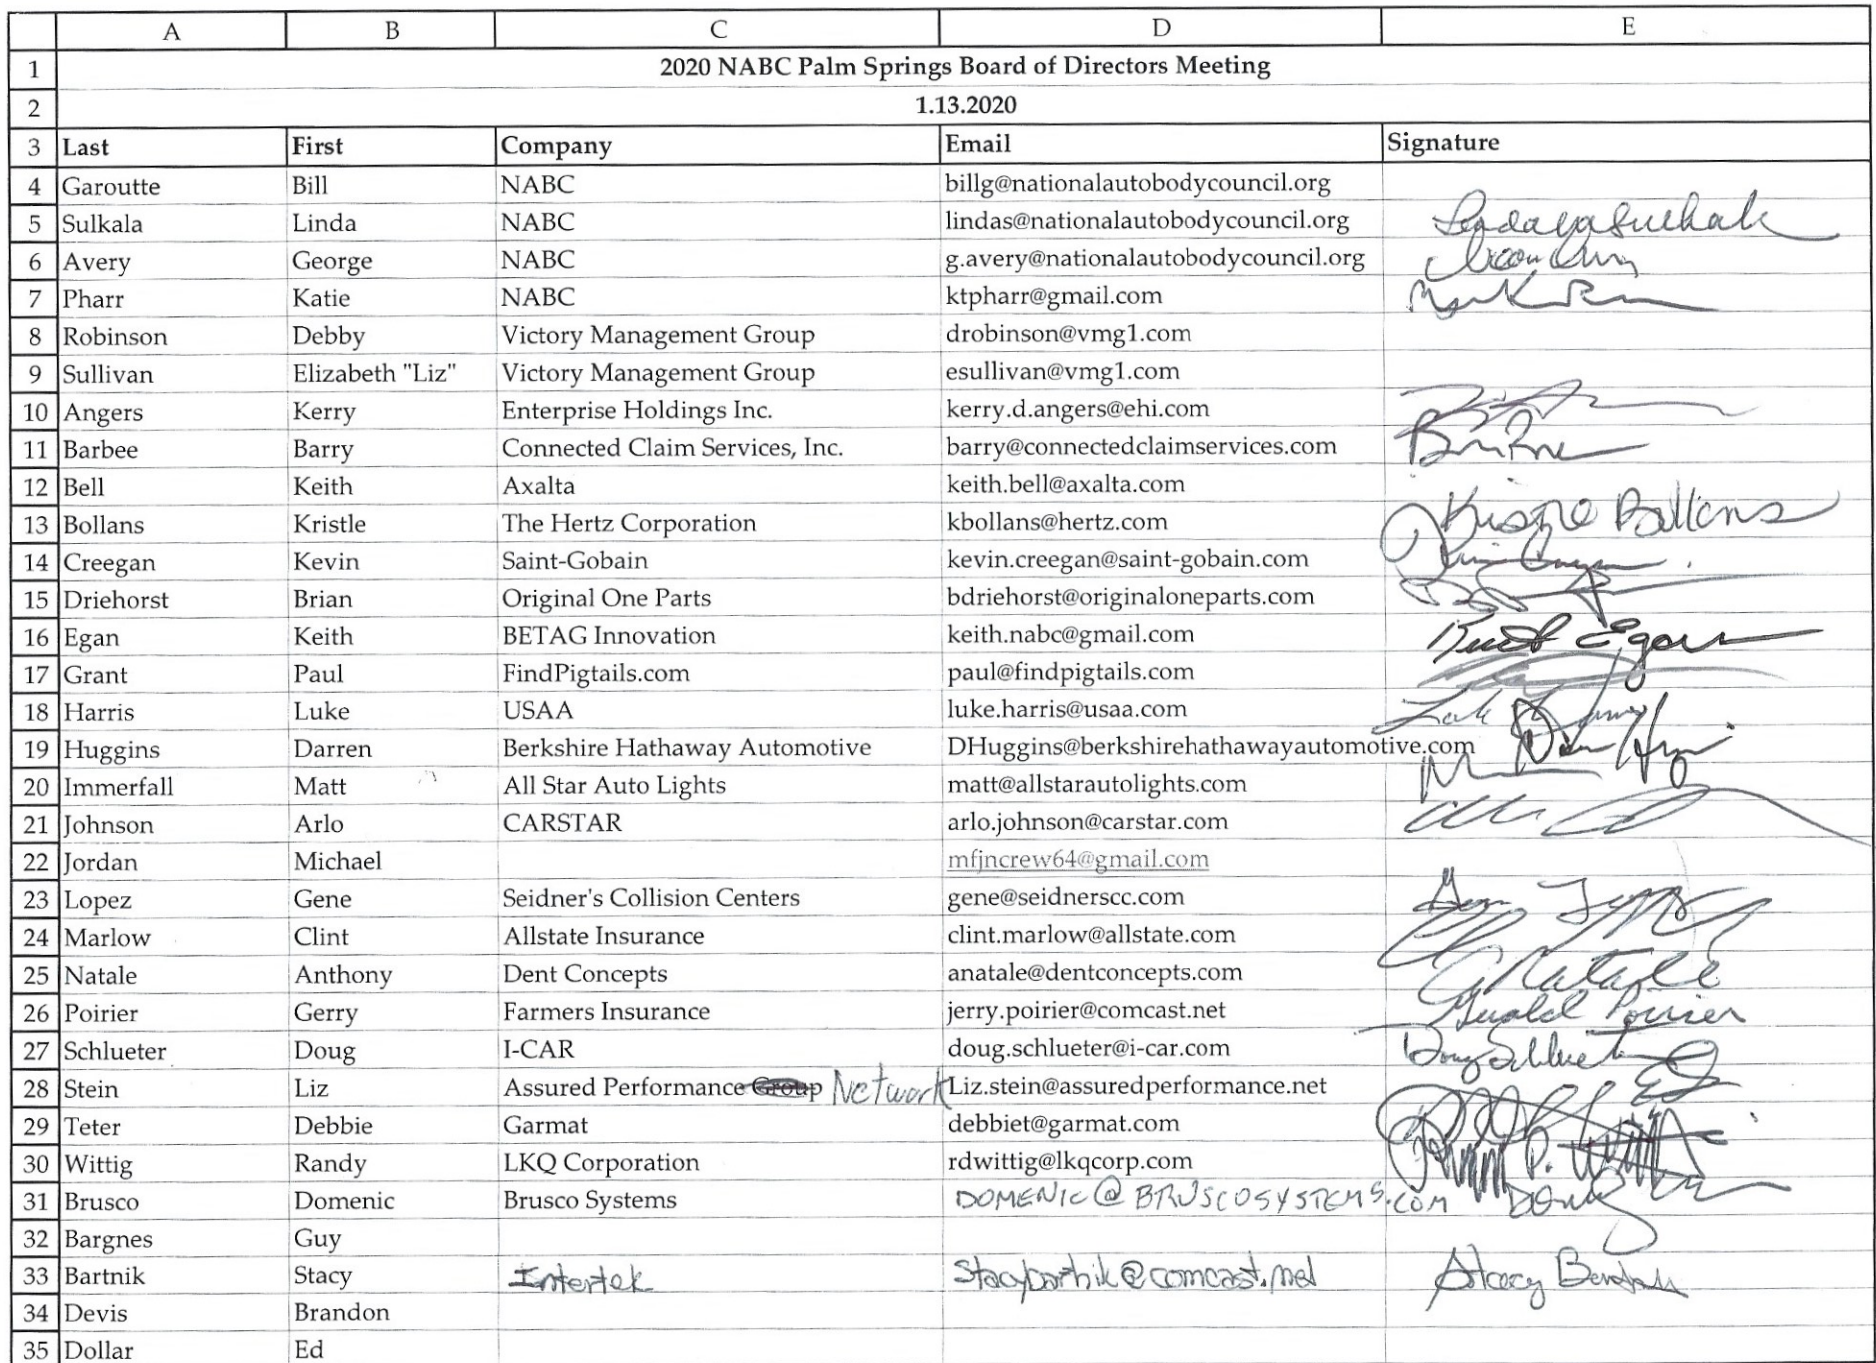 A B C D E
1 2020 NABC Palm Springs Board of Directors Meeting
2 1.13.2020
3 Last First Company Email Signature
4 Garoutte Bill NABC billg@nationalautobodycouncil.org
5 Sulkala Linda NABC lindas@nationalautobodycouncil.org
6 Avery George NABC g.avery@nationalautobodycouncil.org
7 Pharr Katie NABC ktpharr@gmail.com
8 Robinson Debby Victory Management Group drobinson@vmg1.com
9 Sullivan Elizabeth "Liz" Victory Management Group esullivan@vmg1.com
10 Angers Kerry Enterprise Holdings Inc. kerry.d.angers@ehi.com
11 Barbee Barry Connected Claim Services, Inc. barry@connectedclaimservices.com
12 Bell Keith Axalta keith.bell@axalta.com
13 Bollans Kristle The Hertz Corporation kbollans@hertz.com Bollans
14 Creegan Kevin Saint-Gobain kevin.creegan@saint-gobain.com
15 Driehorst Brian Original One Parts bdriehorst@originaloneparts.com
16 Egan Keith BETAG Innovation keith.nabc@gmail.com Egan
17 Grant Paul FindPigtails.com paul@findpigtails.com
18 Harris Luke USAA luke.harris@usaa.com
19 Huggins Darren Berkshire Hathaway Automotive DHuggins@berkshirehathawayautomotive.com
20 Immerfall Matt All Star Auto Lights matt@allstarautolights.com
21 Johnson Arlo CARSTAR arlo.johnson@carstar.com
22 Jordan Michael mfjncrew64@gmail.com
23 Lopez Gene Seidner's Collision Centers gene@seidnerscc.com
24 Marlow Clint Allstate Insurance clint.marlow@allstate.com
25 Natale Anthony Dent Concepts anatale@dentconcepts.com Natale
26 Poirier Gerry Farmers Insurance jerry.poirier@comcast.net Gerald Poirier
27 Schlueter Doug I-CAR doug.schlueter@i-car.com Doug Schlueter
28 Stein Liz Assured Performance Group Network Liz.stein@assuredperformance.net
29 Teter Debbie Garmat debbiet@garmat.com
30 Wittig Randy LKQ Corporation rdwittig@lkqcorp.com
31 Brusco Domenic Brusco Systems DOMENIC@BRUSCOSYSTEMS.COM
32 Bargnes Guy
33 Bartnik Stacy Intertek stacybartnik@comcast.net Stacy
34 Devis Brandon
35 Dollar Ed